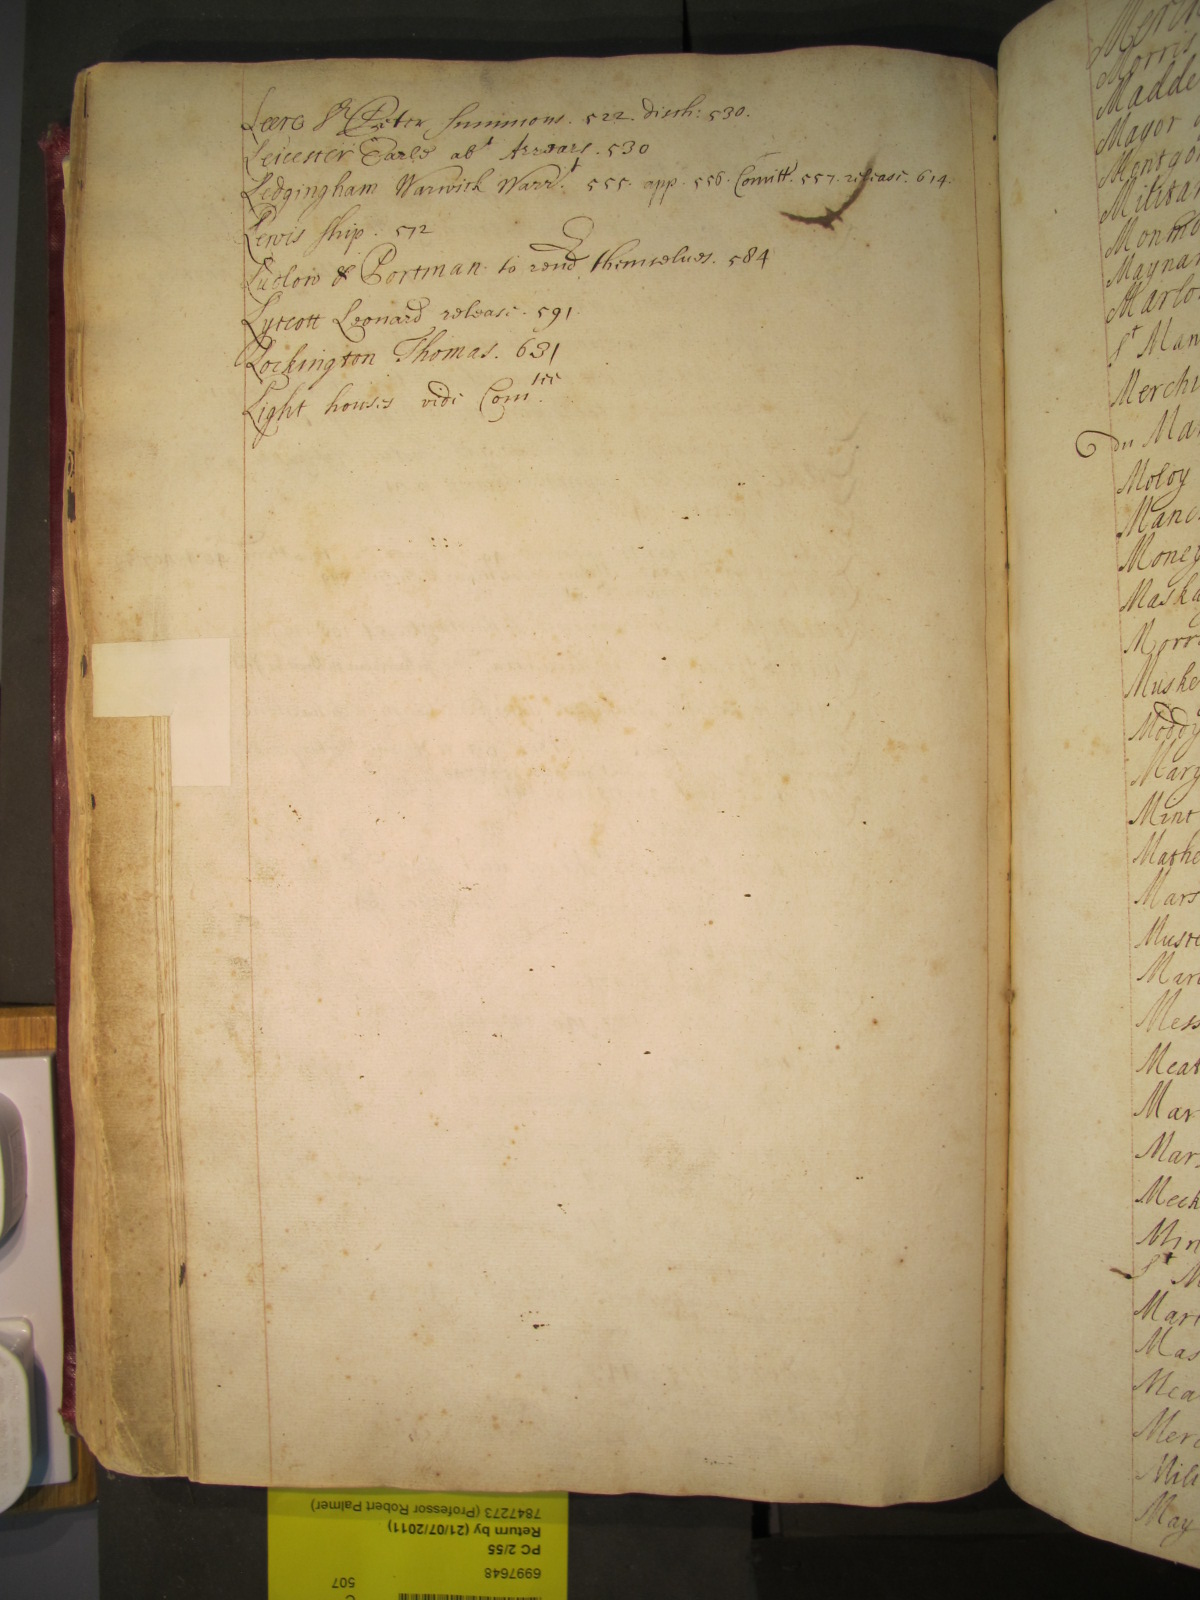 Leero Sr Peter summons. 522. disch: 530.
Leicester Earle abt Arrears. 530
Ledgingham Warwick Warrt. 555. app. 556. Comitt. 557. release. 614.
Lewis ship. 572
Ludlow & Portman to rend themselves. 584
Lytcott Leonard release. 591.
Lockington Thomas. 631
Light houses vide Comtee.
Morris
Madde
Mayor
Montgo
Militar
Monmo
Maynar
Marlo
St Man
Merch
du Ma
Moloy
Manc
Money
Maska
Morr
Muske
Moody
Marg
Mint
Mathe
Mars
Muste
Mari
Mess
Meat
Mar
Mar
Meck
Min
St M
Mari
Mas
Mea
Merc
Mili
May
7847273 (Professor Robert Palmer)
Return by (21/07/2011)
PC 2/55
6997648
507